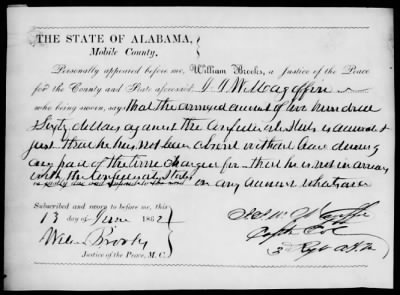 THE STATE OF ALABAMA,
Mobile County.
Personally appeared before me, William Brooks, a Justice of the Peace
for the County and State aforesaid J. W. Magoffin
who being sworn, says that the annexed account of two hundred
Sixty dollars against the Confederate States is correct &
just that he has not been absent without leave during
any part of the time charged for – that he is not in arrears
with the Confederate States
on any account whatsoever
Subscribed and sworn to before me, this
13 day of June 1862
Willm Brooks
Justice of the Peace, M. C.
Capt Co